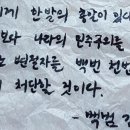 에게 한발의 총탄이 있다
보다 나라와 민주주의를
변절자를 백번 천번
처단할 것이다.
- 백범 김